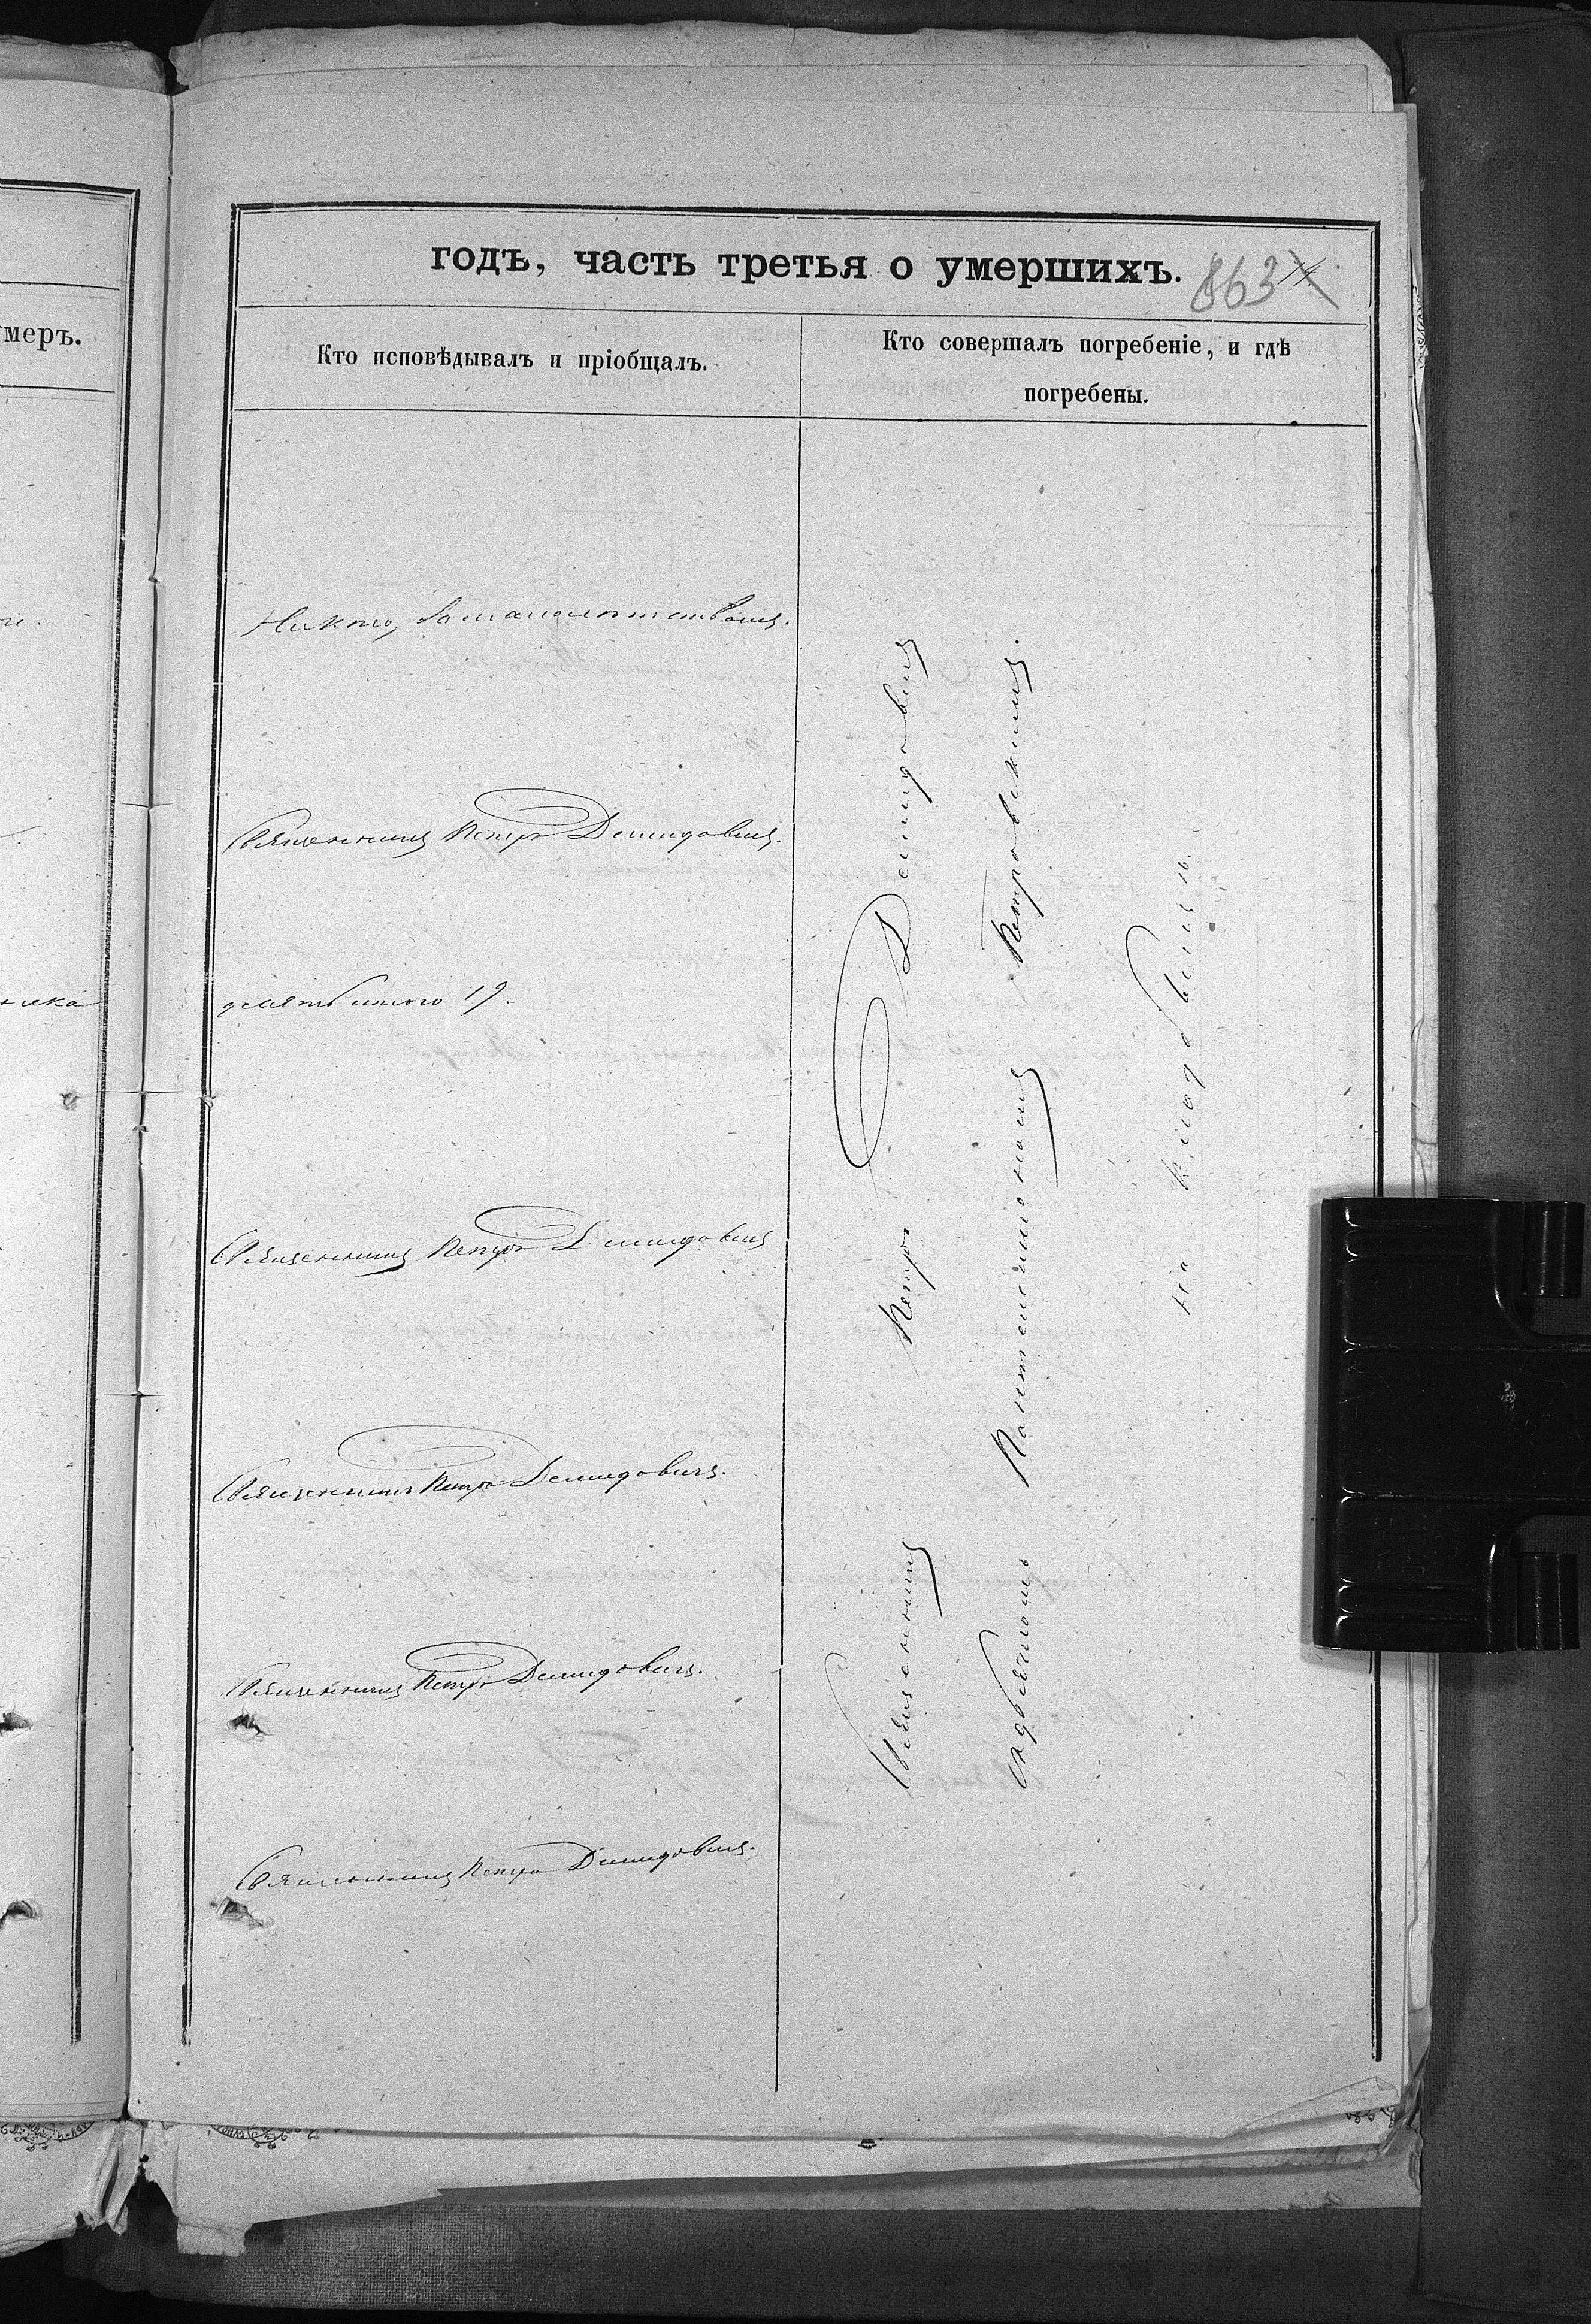 годъ, часть третья о умершихъ.
863
меръ.
Кто исповѣдывалъ и пріобщалъ.
Кто совершалъ погребеніе, и гдѣ
погребены.
Никто, за малолѣтствомъ.
Священникъ Петръ Демидовичъ.
Священникъ Петръ Демидовичъ
Священникъ Петръ Демидовичъ.
Священникъ Петръ Демидовичъ.
Священникъ Петръ Демидовичъ.
Священникъ Петръ Демидовичъ
Петровскимъ.
на кладбищѣ.